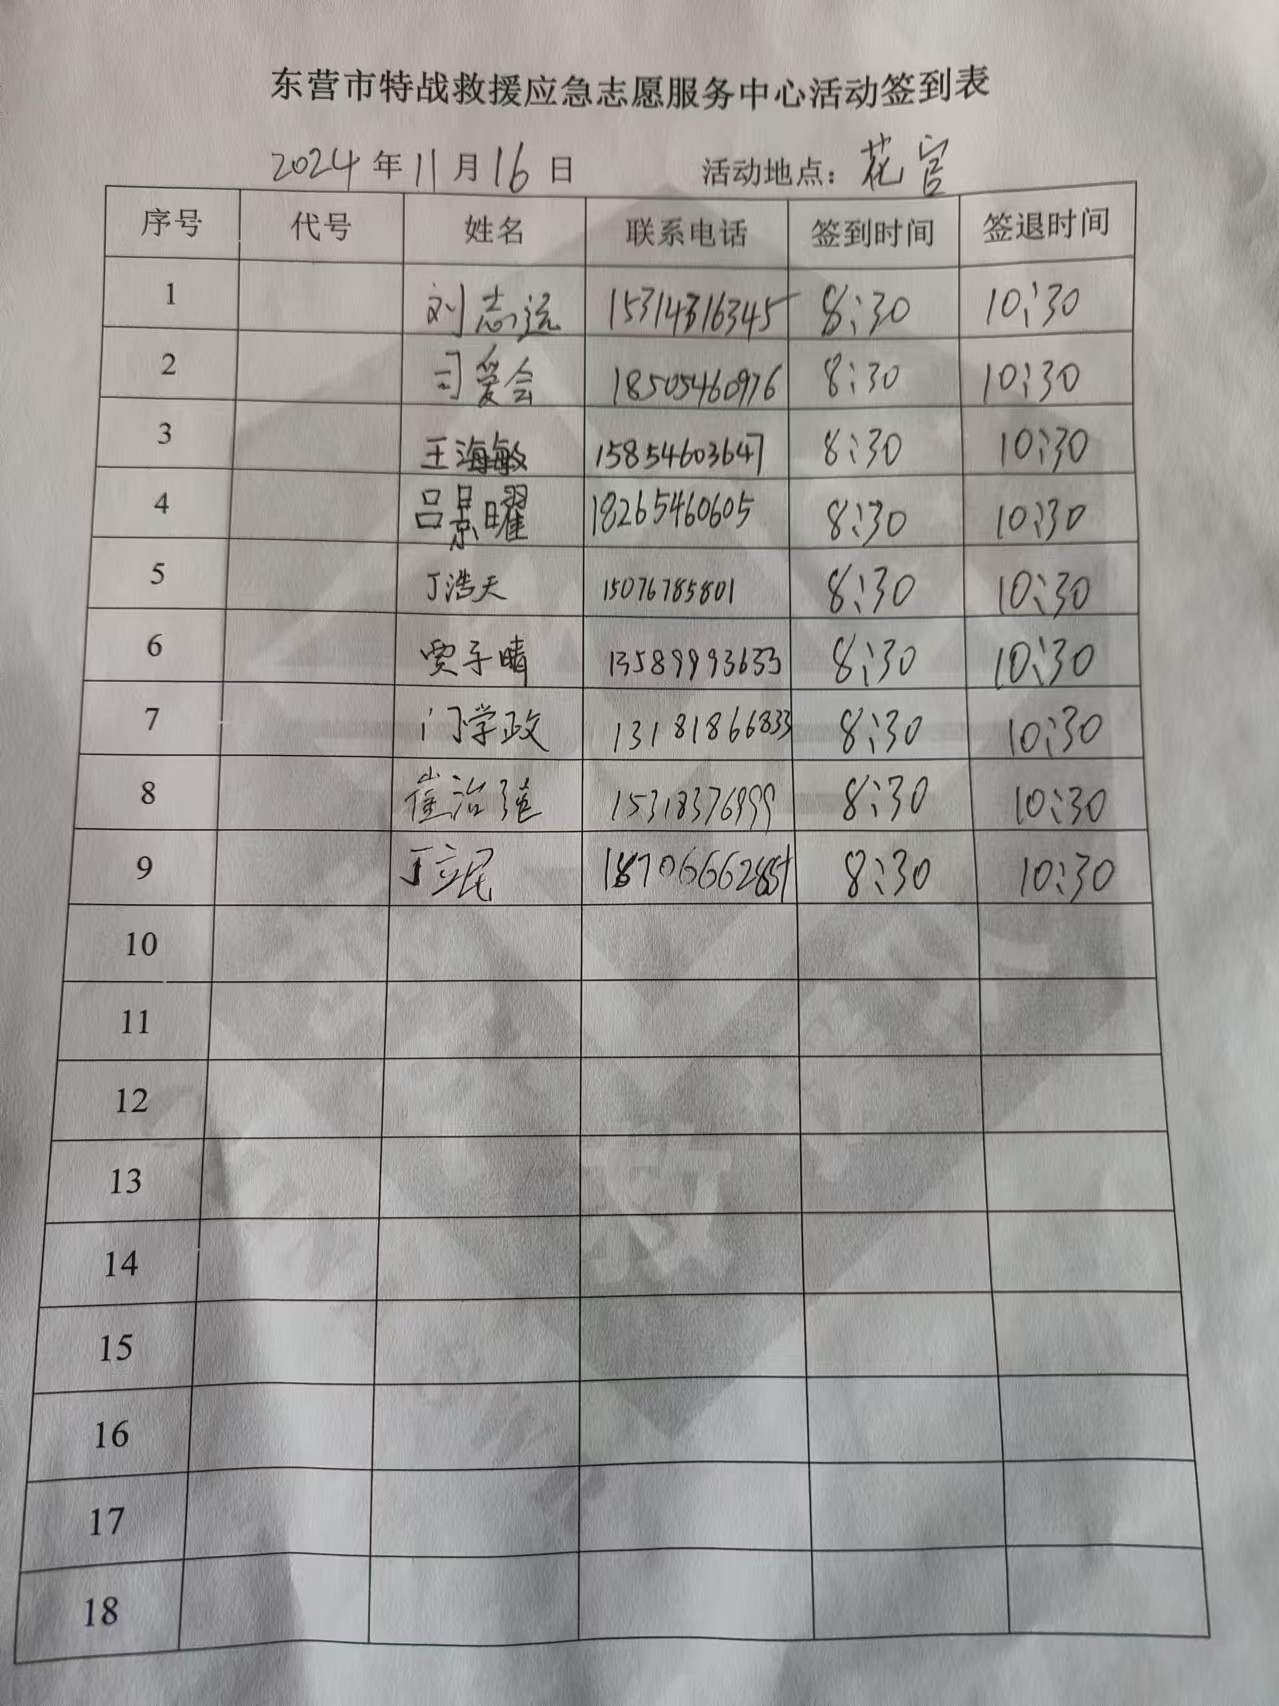 东营市特战救援应急志愿服务中心活动签到表
2024年11月16日 活动地点：花官
序号 代号 姓名 联系电话 签到时间 签退时间
1 刘志远 15314316345 8:30 10:30
2 司爱会 18505460976 8:30 10:30
3 王海敏 15854603647 8:30 10:30
4 吕景曜 18265460605 8:30 10:30
5 丁浩天 15076785801 8:30 10:30
6 贾子晴 13589993633 8:30 10:30
7 门学政 13181866833 8:30 10:30
8 崔治强 15318376999 8:30 10:30
9 丁立民 8:30 10:30
10
11
12
13
14
15
16
17
18